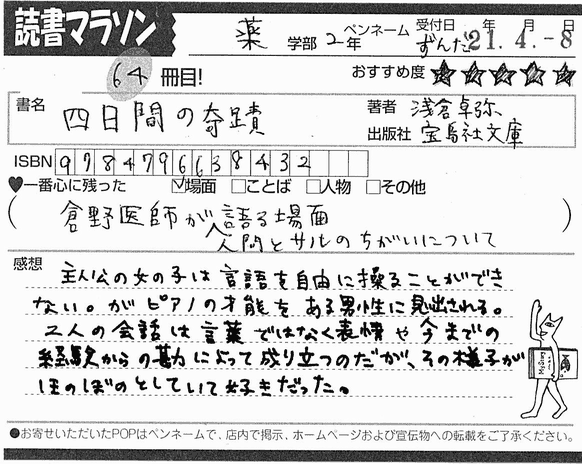 読書マラソン
薬 学部 2年
ペンネーム ずんだ
受付日 年 月 日
21.4.-8
64 冊目!
おすすめ度 ★★★★★
書名 四日間の奇蹟
著者 浅倉卓弥
出版社 宝島社文庫
ISBN 9784796638432
♥一番心に残った ☑場面 □ことば □人物 □その他
(倉野医師が語る場面
人間とサルのちがいについて)
感想
主人公の女の子は言語を自由に操ることができ
ない。がピアノの才能をある男性に見出される。
2人の会話は言葉ではなく表情や今までの
経験からの勘によって成り立つのだが、その様子が
ほのぼのとしていて好きだった。
●お寄せいただいたPOPはペンネームで、店内で掲示、ホームページおよび宣伝物への転載をご了承ください。